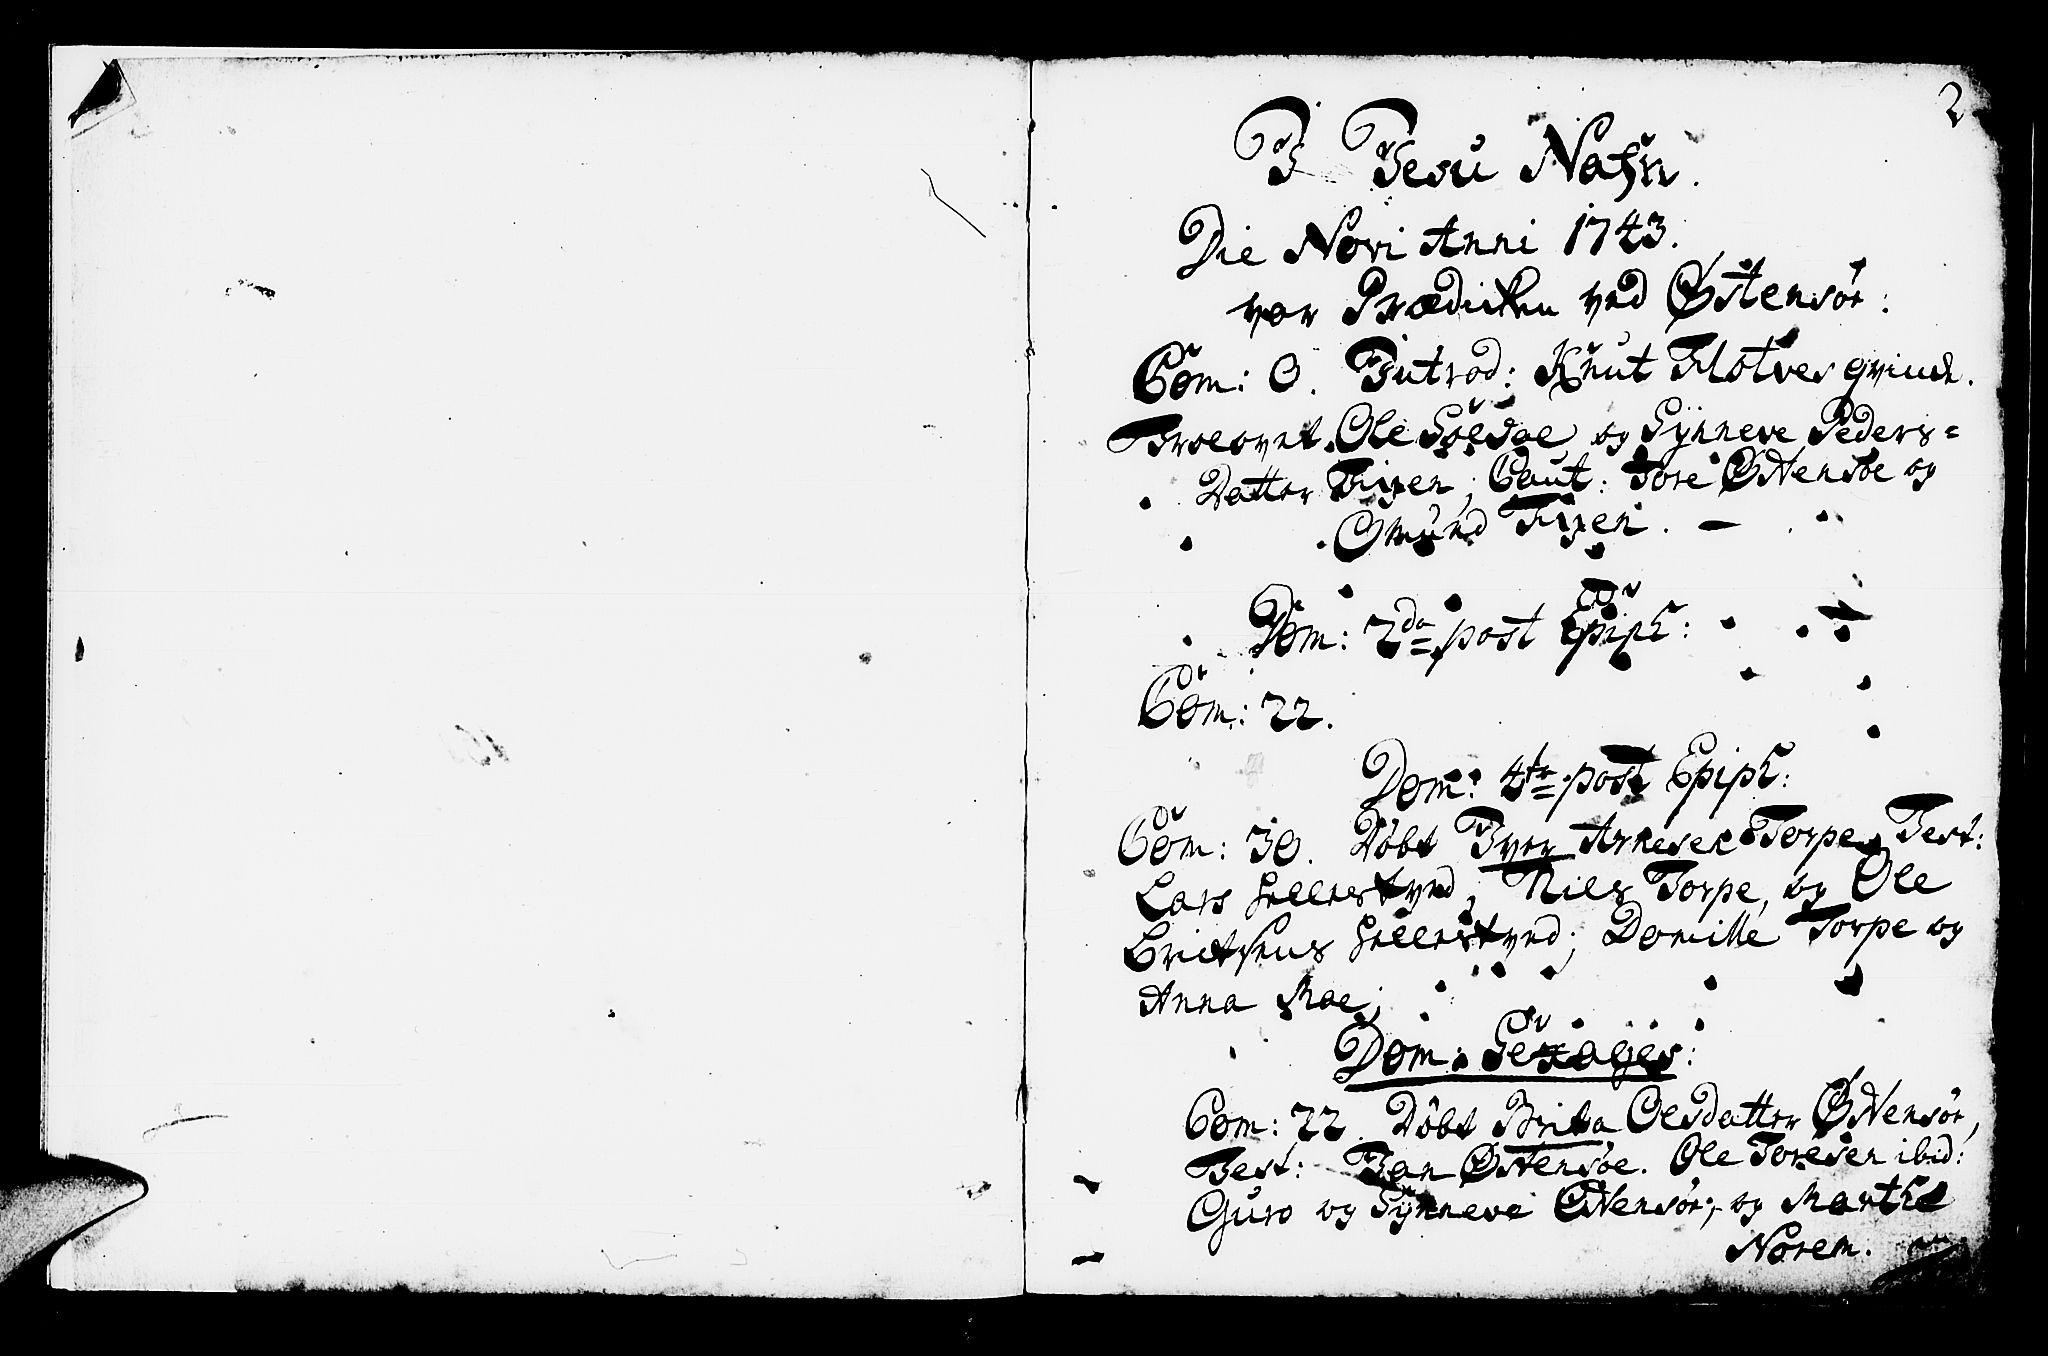 2
I Jesu Nafn.
Die Novi Anni 1743.
var Prædicken ved Østensøe:
Com: 0. Introd: Knut Flotves qvinde.
Troelovet Ole Soldal og Synneve Peders=
Datter Fixen, Caut: Tore Østensøe og
Omund Fixen. –
Dom: 2da post Epiph:
Com: 22.
Dom: 4ta post Epiph:
Com: 30. Döbt Iver Arnesen Torpe, Test:
Lars Hellestved, Niels Torpe, og Ole
Erichsens Hellestved; Domille Torpe og
Anna Moe;
Dom: Sexages:
Com: 22. Döbt Brita Olsdatter Østensøe,
Test: Jan Østensøe. Ole Toresen ibid:
Guro og Synneve Østensøe, og Marthe
Norem.